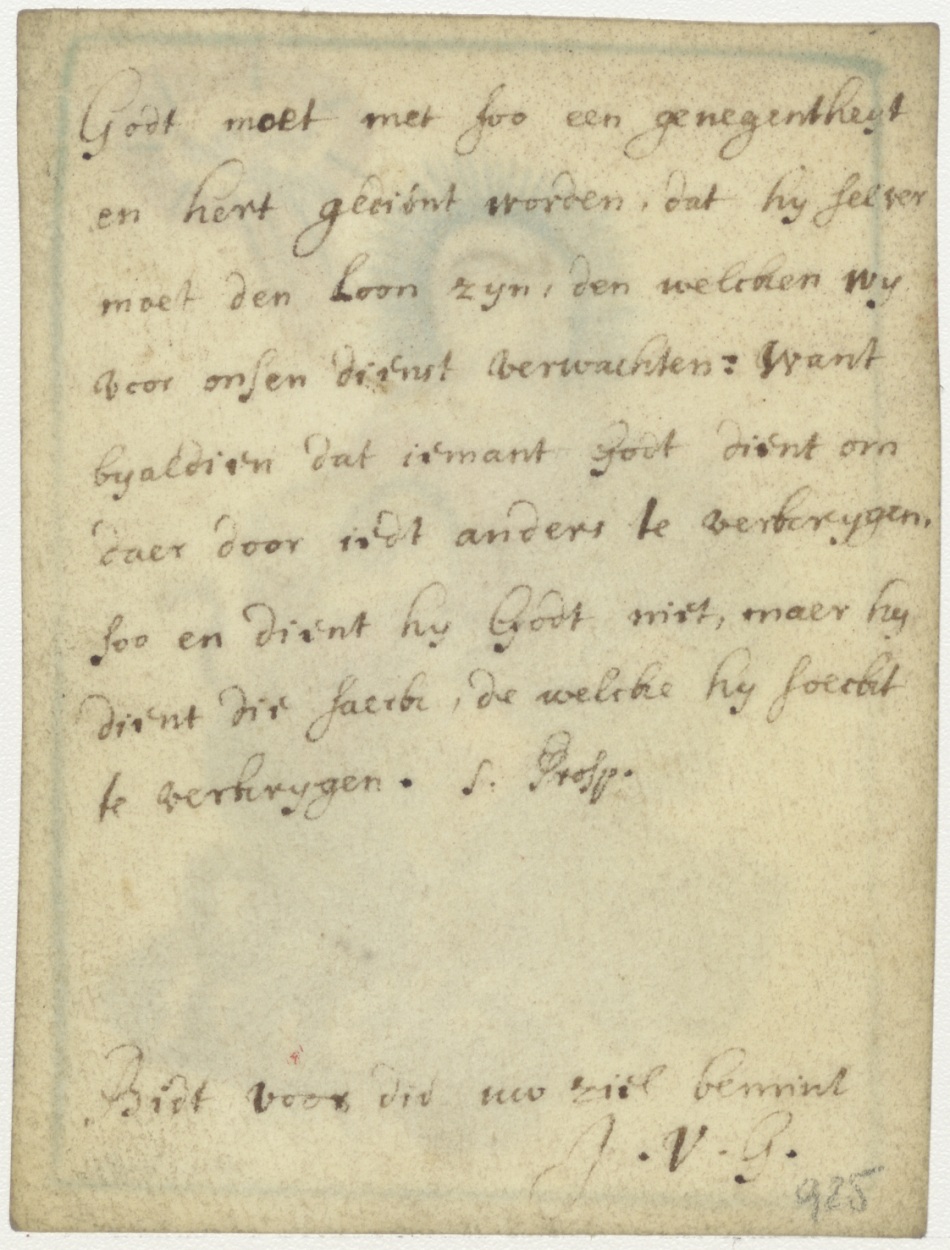 Godt moet met soo een genegentheyt
en hert gedient worden, dat hy selver
moet den Loon zyn, den welcken wy
voor onsen dienst verwachten: Want
byaldien dat iemant Godt dient om
daer door iedt anders te verkrygen,
soo en dient hy Godt niet, maer hy
dient die saecke, de welcke hy soeckt
te verkrygen. S. Prosp.
Bidt voor die uw ziel bemint
J. V. G.
925